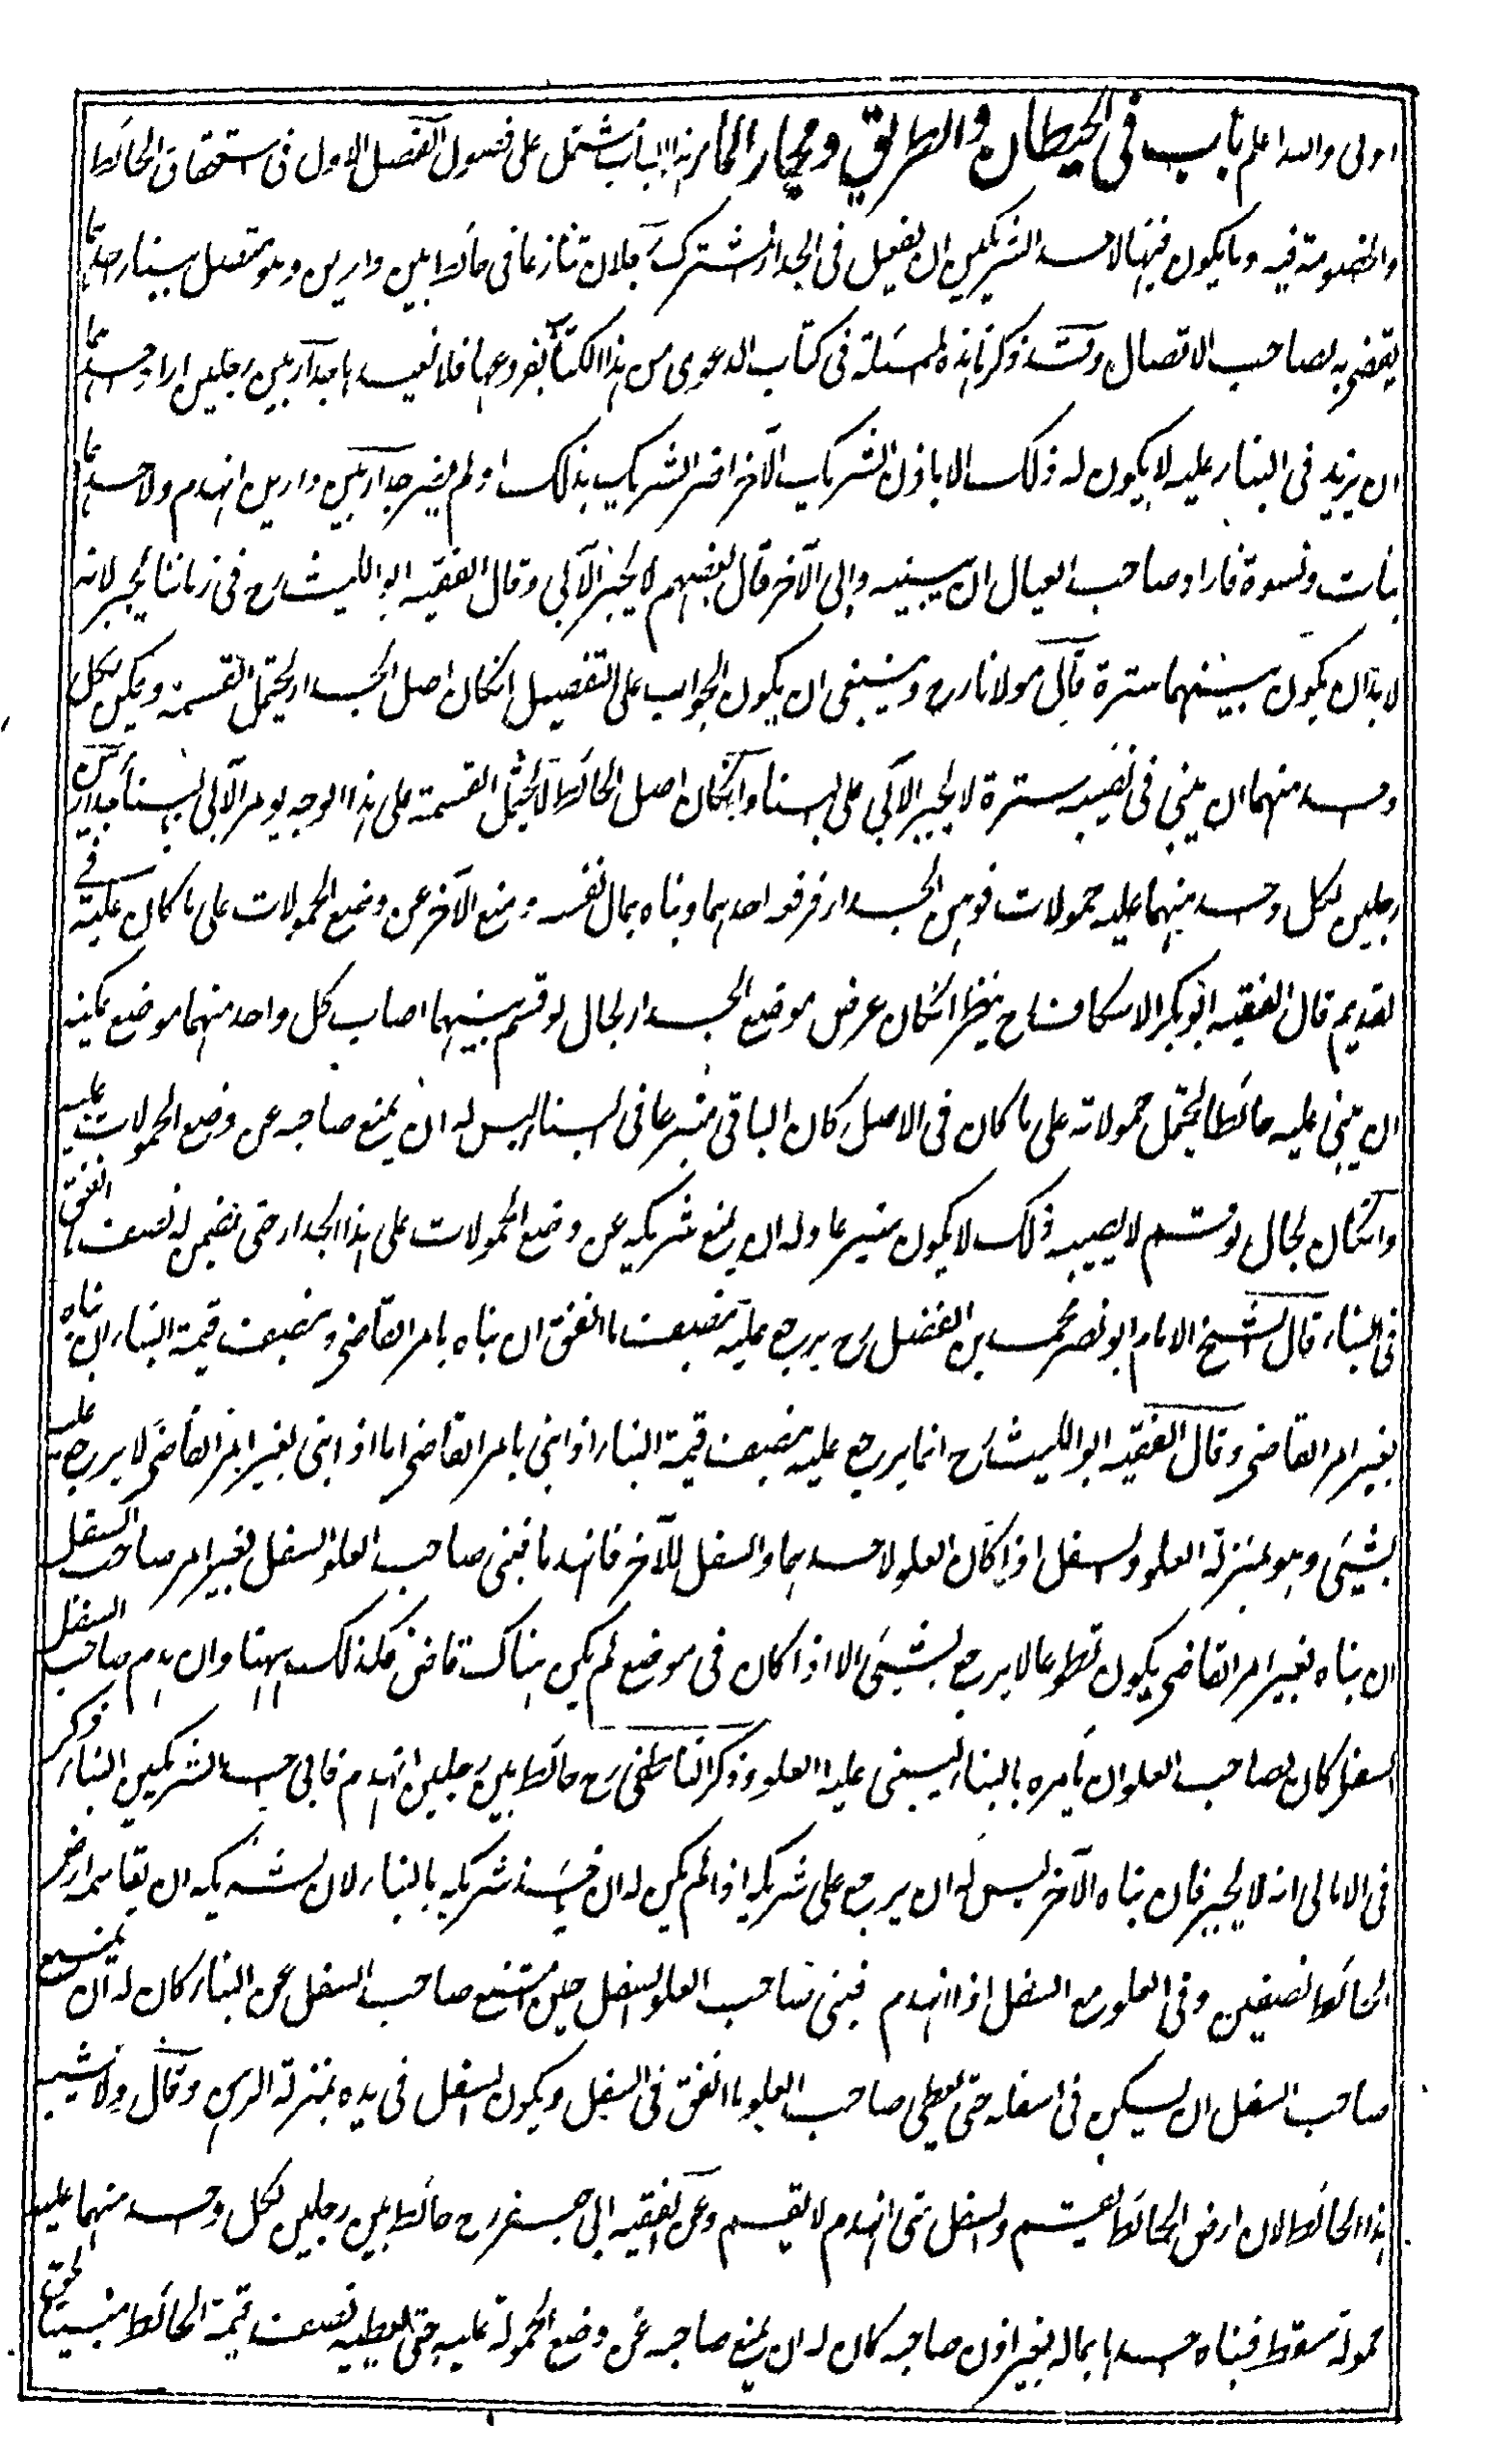 اولى والله اعلم باب فى الحيطان والطريق ومجار الماء هذا الباب يشتمل على فصول الفصل الاول فى استحقاق الحائط
والخصومة فيه وما يكون فيها لاحد الشريكين ان يفعل فى الجدار المشترك رجلان تنازعا فى حائط بين دارين وهو متصل ببناء احدهما
يقضى به لصاحب الاتصال وقد ذكرنا هذه المسئلة فى كتاب الدعوى من هذا الكتاب بفروعها فلا نعيدها جدار بين رجلين اراد احدهما
ان يزيد فى البناء عليه لا يكون له ذلك الا باذن الشريك الآخر اضر الشريك بذلك او لم يضر جدار بين دارين انهدم ولاحدهما
بنات ونسوة فاراد صاحب العيال ان يبنيه وابى الآخر قال بعضهم لا يجبر الآبى وقال الفقيه ابو الليث رح فى زماننا يجبر لانه
لا بد ان يكون بينهما سترة قال مولانا رح وينبغى ان يكون الجواب على التفصيل انكان اصل الجدار يحتمل القسمة ويمكن لكل
واحد منهما ان يبنى فى نصيبه سترة لا يجبر الآبى على البناء وانكان اصل الحائط لا يحتمل القسمة على هذا الوجه يومر الآبى بالبناء جدار بين
رجلين لكل واحد منهما عليه حمولات فوهى الجدار فرفعه احدهما وبناه بمال نفسه ومنع الآخر عن وضع الحمولات على ما كان عليه فى
القديم قال الفقيه ابو بكر الاسكاف رح ينظر انكان عرض موضع الجدار بحال لو قسم بينهما اصاب كل واحد منهما موضع يمكنه
ان يبنى عليه حائطا يحتمل حمولاته على ما كان فى الاصل كان البانى متبرعا فى البناء ليس له ان يمنع صاحبه عن وضع الحمولات عليه
وانكان بحال لو قسم لا يصيبه ذلك لا يكون متبرعا وله ان يمنع شريكه عن وضع الحمولات على هذا الجدار حتى يضمن له نصف ما انفق
فى البناء قال الشيخ الامام ابو نصر محمد بن الفضل رح يرجع عليه بنصف ما انفق ان بناه بامر القاضى وبنصف قيمة البناء ان بناه
بغير امر القاضى وقال الفقيه ابو الليث رح انما يرجع عليه بنصف قيمة البناء اذا بنى بامر القاضى اما اذا بنى بغير امر القاضى لا يرجع عليه
بشيئ وهو بمنزلة العلو والسفل اذا كان العلو لاحدهما والسفل للآخر فانهدما فبنى صاحب العلو السفل بغير امر صاحب السفل
ان بناه بغير امر القاضى يكون تطوعا لا يرجع بشيئ الا اذا كان فى موضع لم يكن هناك قاض فكذلك ههنا وان هدم صاحب السفل
السفل كان لصاحب العلو ان يأمره بالبناء ليبنى عليه العلو وذكر الناطفى رح حائط بين رجلين انهدم فابى احد الشريكين البناء ذكر
فى الامالى انه لا يجبر فان بناه الآخر ليس له ان يرجع على شريكه اذا لم يكن له ان يأخذ شريكه بالبناء لان لشريكه ان يقاسمه ارض
الحائط نصفين وفى العلو مع السفل اذا انهدم فبنى صاحب العلو السفل حين امتنع صاحب السفل عن البناء كان له ان يمنع
صاحب السفل ان يسكن فى سفله حتى يعطى صاحب العلو ما انفق فى السفل ويكون السفل فى يده بمنزلة الرهن وقال ولا يشبه
هذا الحائط لان ارض الحائط يقسم والسفل متى انهدم لا يقسم وعن الفقيه ابى جعفر رح حائط بين رجلين لكل واحد منهما عليه
حمولة سقط فبناه احدهما بماله بغير اذن صاحبه كان له ان يمنع صاحبه عن وضع الحمولة عليه حتى يعطيه نصف قيمة الحائط مبنيا بحق